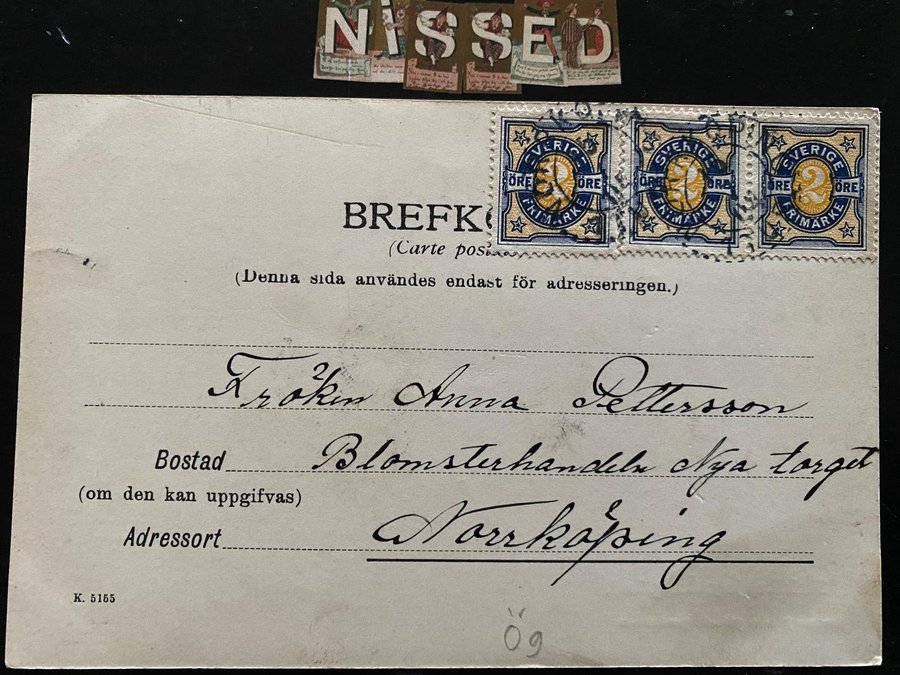 NISSED
SVERIGE SVERIGE SVERIGE
ÖRE ÖRE ÖRE ÖRE 2 ÖRE
FRIMÄRKE FRIMÄRKE FRIMÄRKE
BREFKO
(Carte postale)
(Denna sida användes endast för adresseringen.)
Fröken Anna Pettersson
Bostad Blomsterhandeln Nya torget
(om den kan uppgifvas)
Adressort Norrköping
K. 5155
Ög